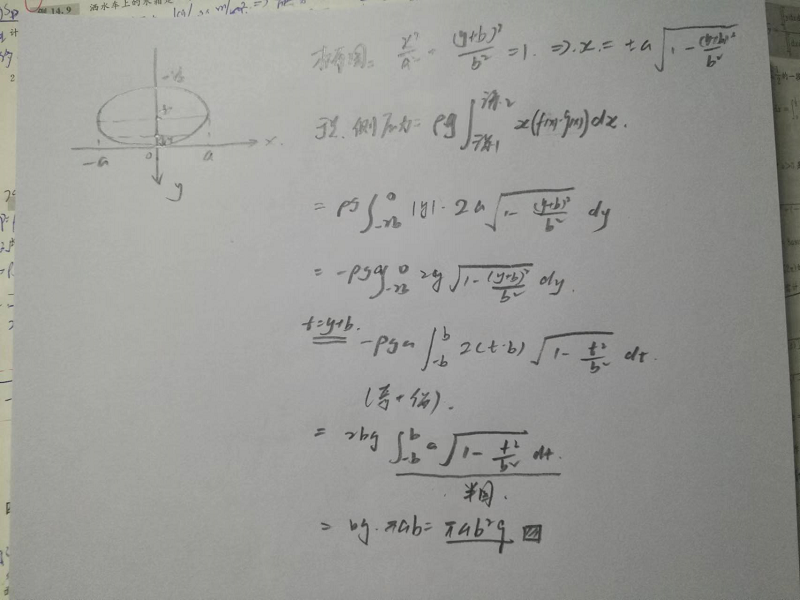 例 14.9 洒水车上的水箱是
-2b
-a 0 a x
y
椭圆: x²/a² + (y+b)²/b² = 1. => x = ±a√(1-(y+b)²/b²)
侧压力= ρg∫ x(f(x)-g(x))dx.
= ρg∫_{-2b}^{0} |y|·2a√(1-(y+b)²/b²) dy
= -ρga∫_{-2b}^{0} 2y√(1-(y+b)²/b²) dy.
t=y+b. = -ρga∫_{-b}^{b} 2(t-b)√(1-t²/b²) dt.
(奇+偶).
= 2bg∫_{-b}^{b} a√(1-t²/b²) dt.
半圆.
= bg·πab = πab²g